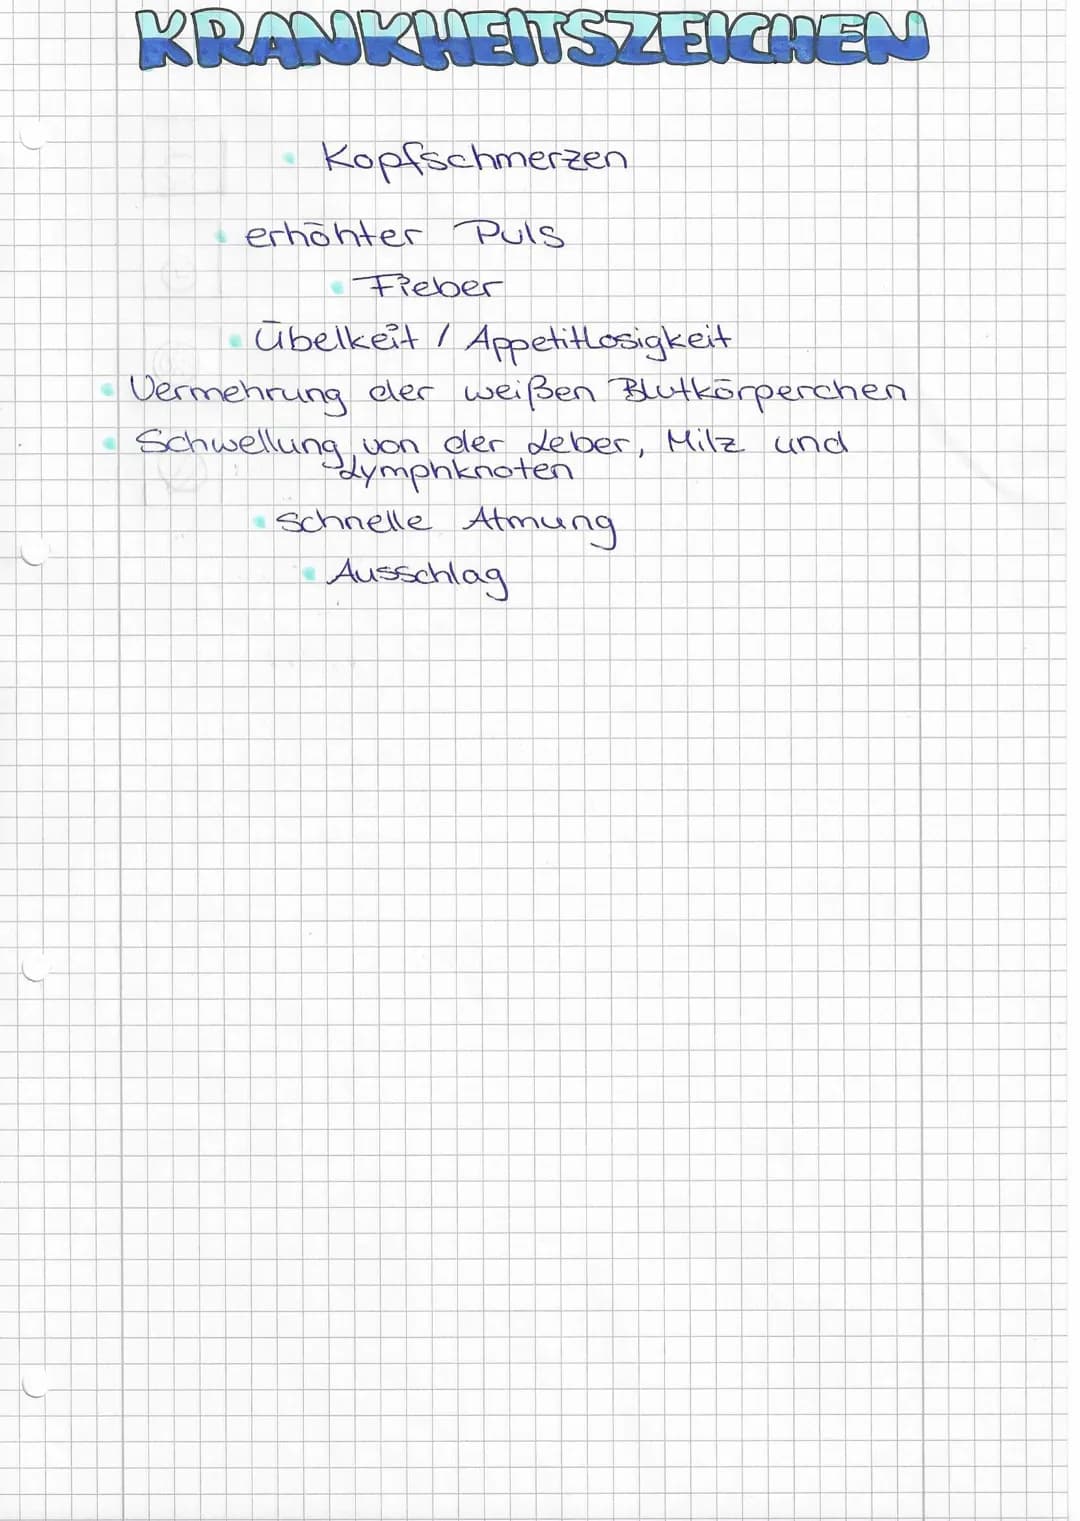 KRANKHEITSZEICHEN
• Kopfschmerzen
• erhöhter Puls
• Fieber
• Übelkeit / Appetitlosigkeit
• Vermehrung der weißen Blutkörperchen
• Schwellung von der Leber, Milz und
Lymphknoten
• schnelle Atmung
• Ausschlag